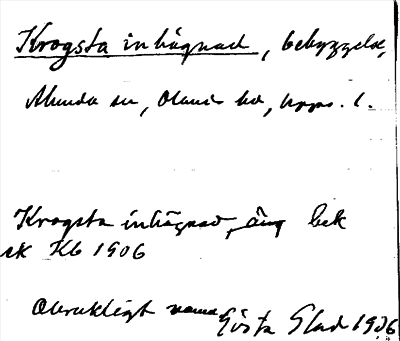 Krogsta inhägnad, bebyggelse,
Alunda sn, Olands hd, Upps. l.
Krogsta inhägnad, äng bek
ek Kb 1906
Obrukligt namn
Gösta Glad 1936